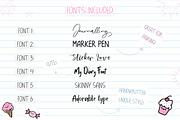 FONTS INCLUDED
FONT 1 Journalling
FONT 2 MARKER PEN
FONT 3 Sticker Love
FONT 4 My Diary Font
FONT 5 SKINNY SANS
FONT 6 Adorable type
GREAT FOR
HANDWRITTEN
UNIQUE STYLES